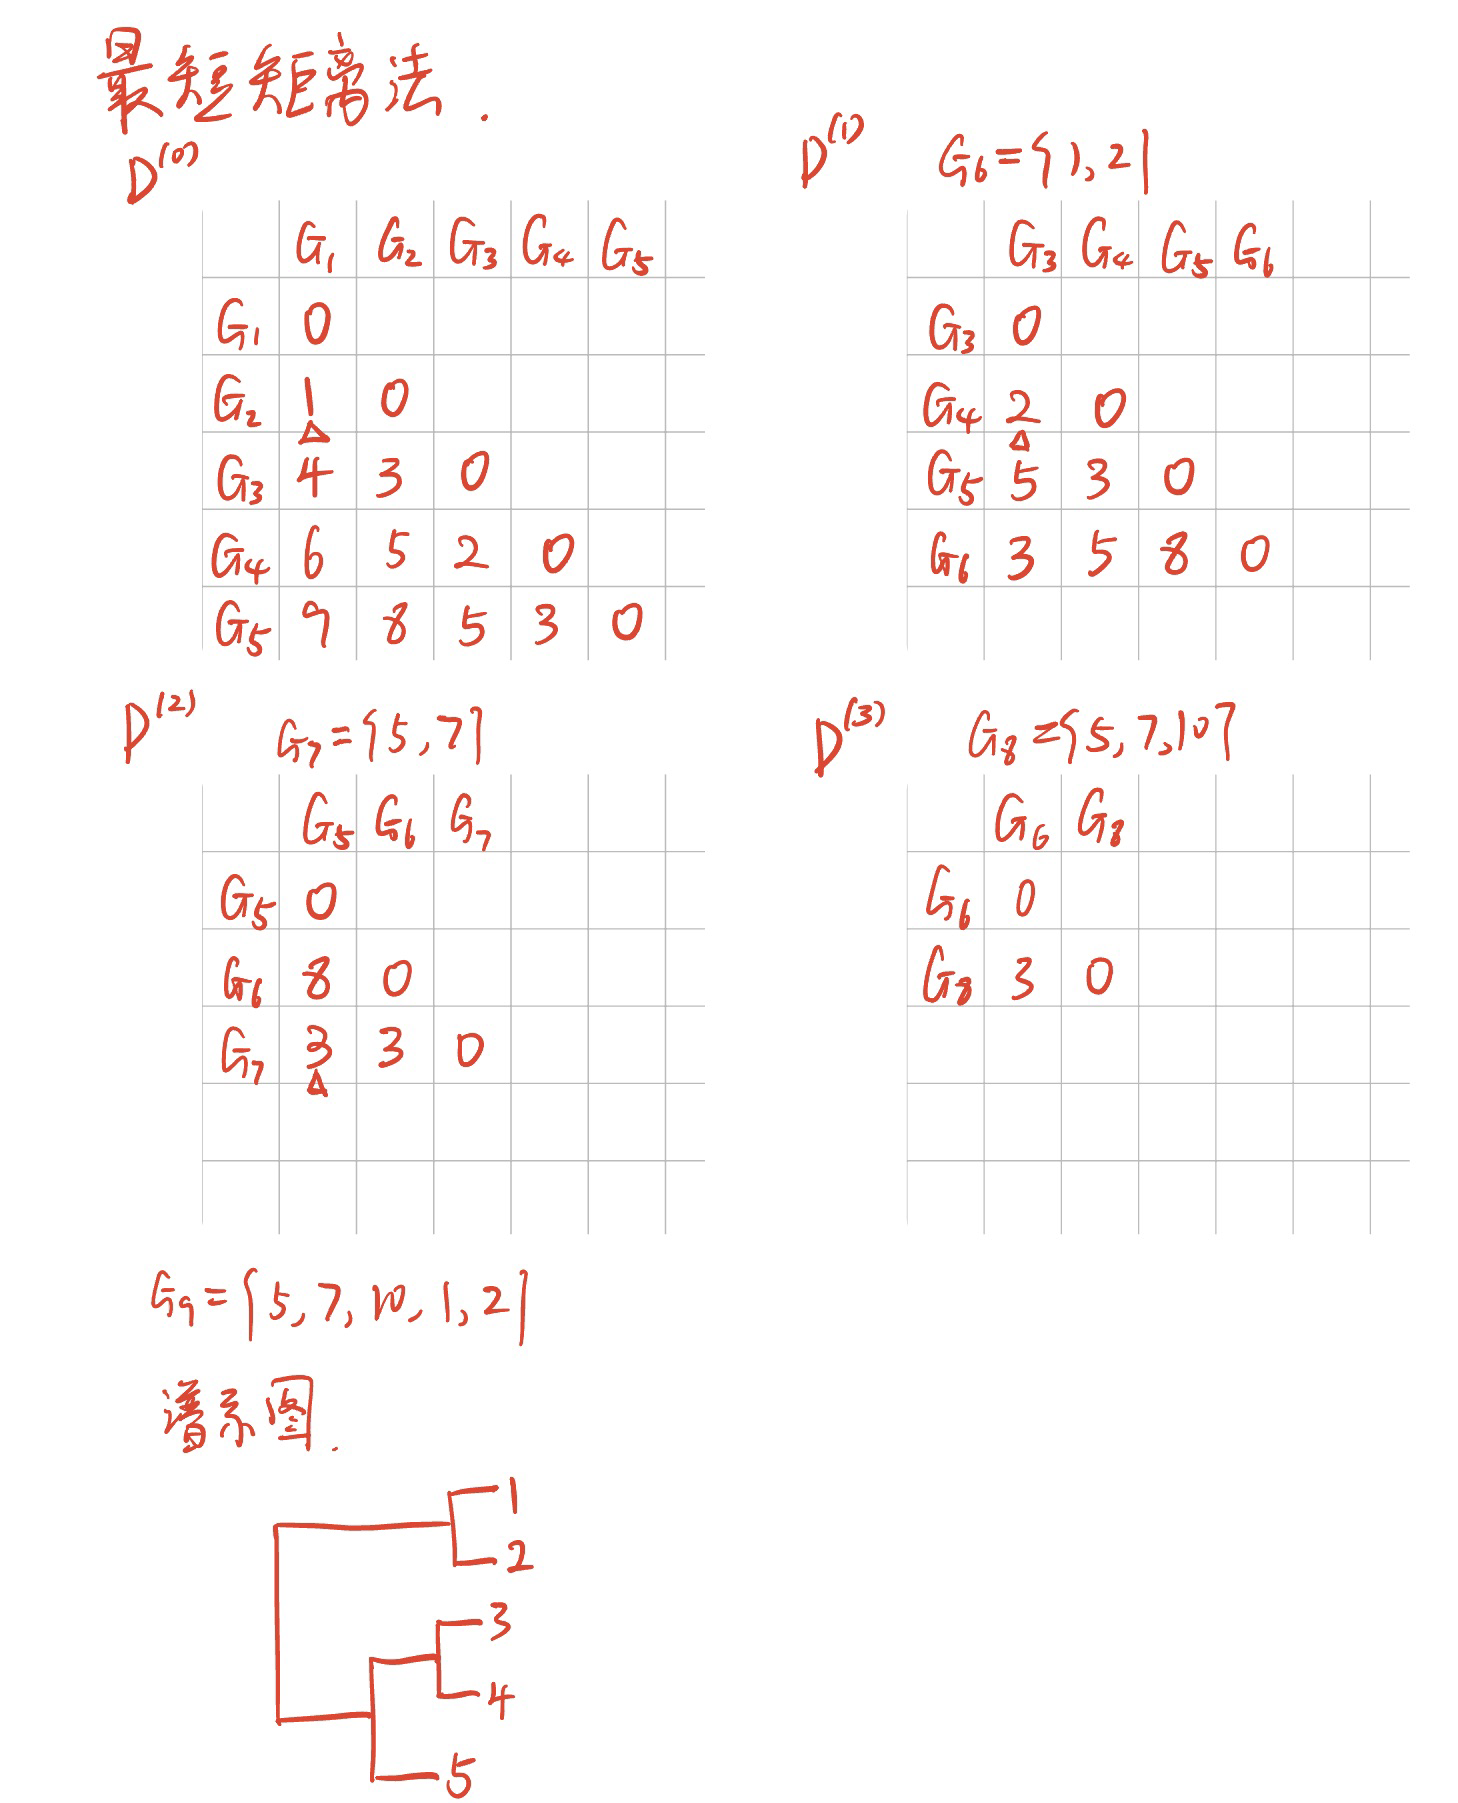 最短矩离法.
D⁽⁰⁾
G₁ G₂ G₃ G₄ G₅
G₁ 0
G₂ 1 0
G₃ 4 3 0
G₄ 6 5 2 0
G₅ 9 8 5 3 0
D⁽¹⁾ G₆={1,2}
G₃ G₄ G₅ G₆
G₃ 0
G₄ 2 0
G₅ 5 3 0
G₆ 3 5 8 0
D⁽²⁾ G₇={5,7}
G₅ G₆ G₇
G₅ 0
G₆ 8 0
G₇ 3 3 0
D⁽³⁾ G₈={5,7,10}
G₆ G₈
G₆ 0
G₈ 3 0
G₉={5,7,10,1,2}
谱系图.
1
2
3
4
5